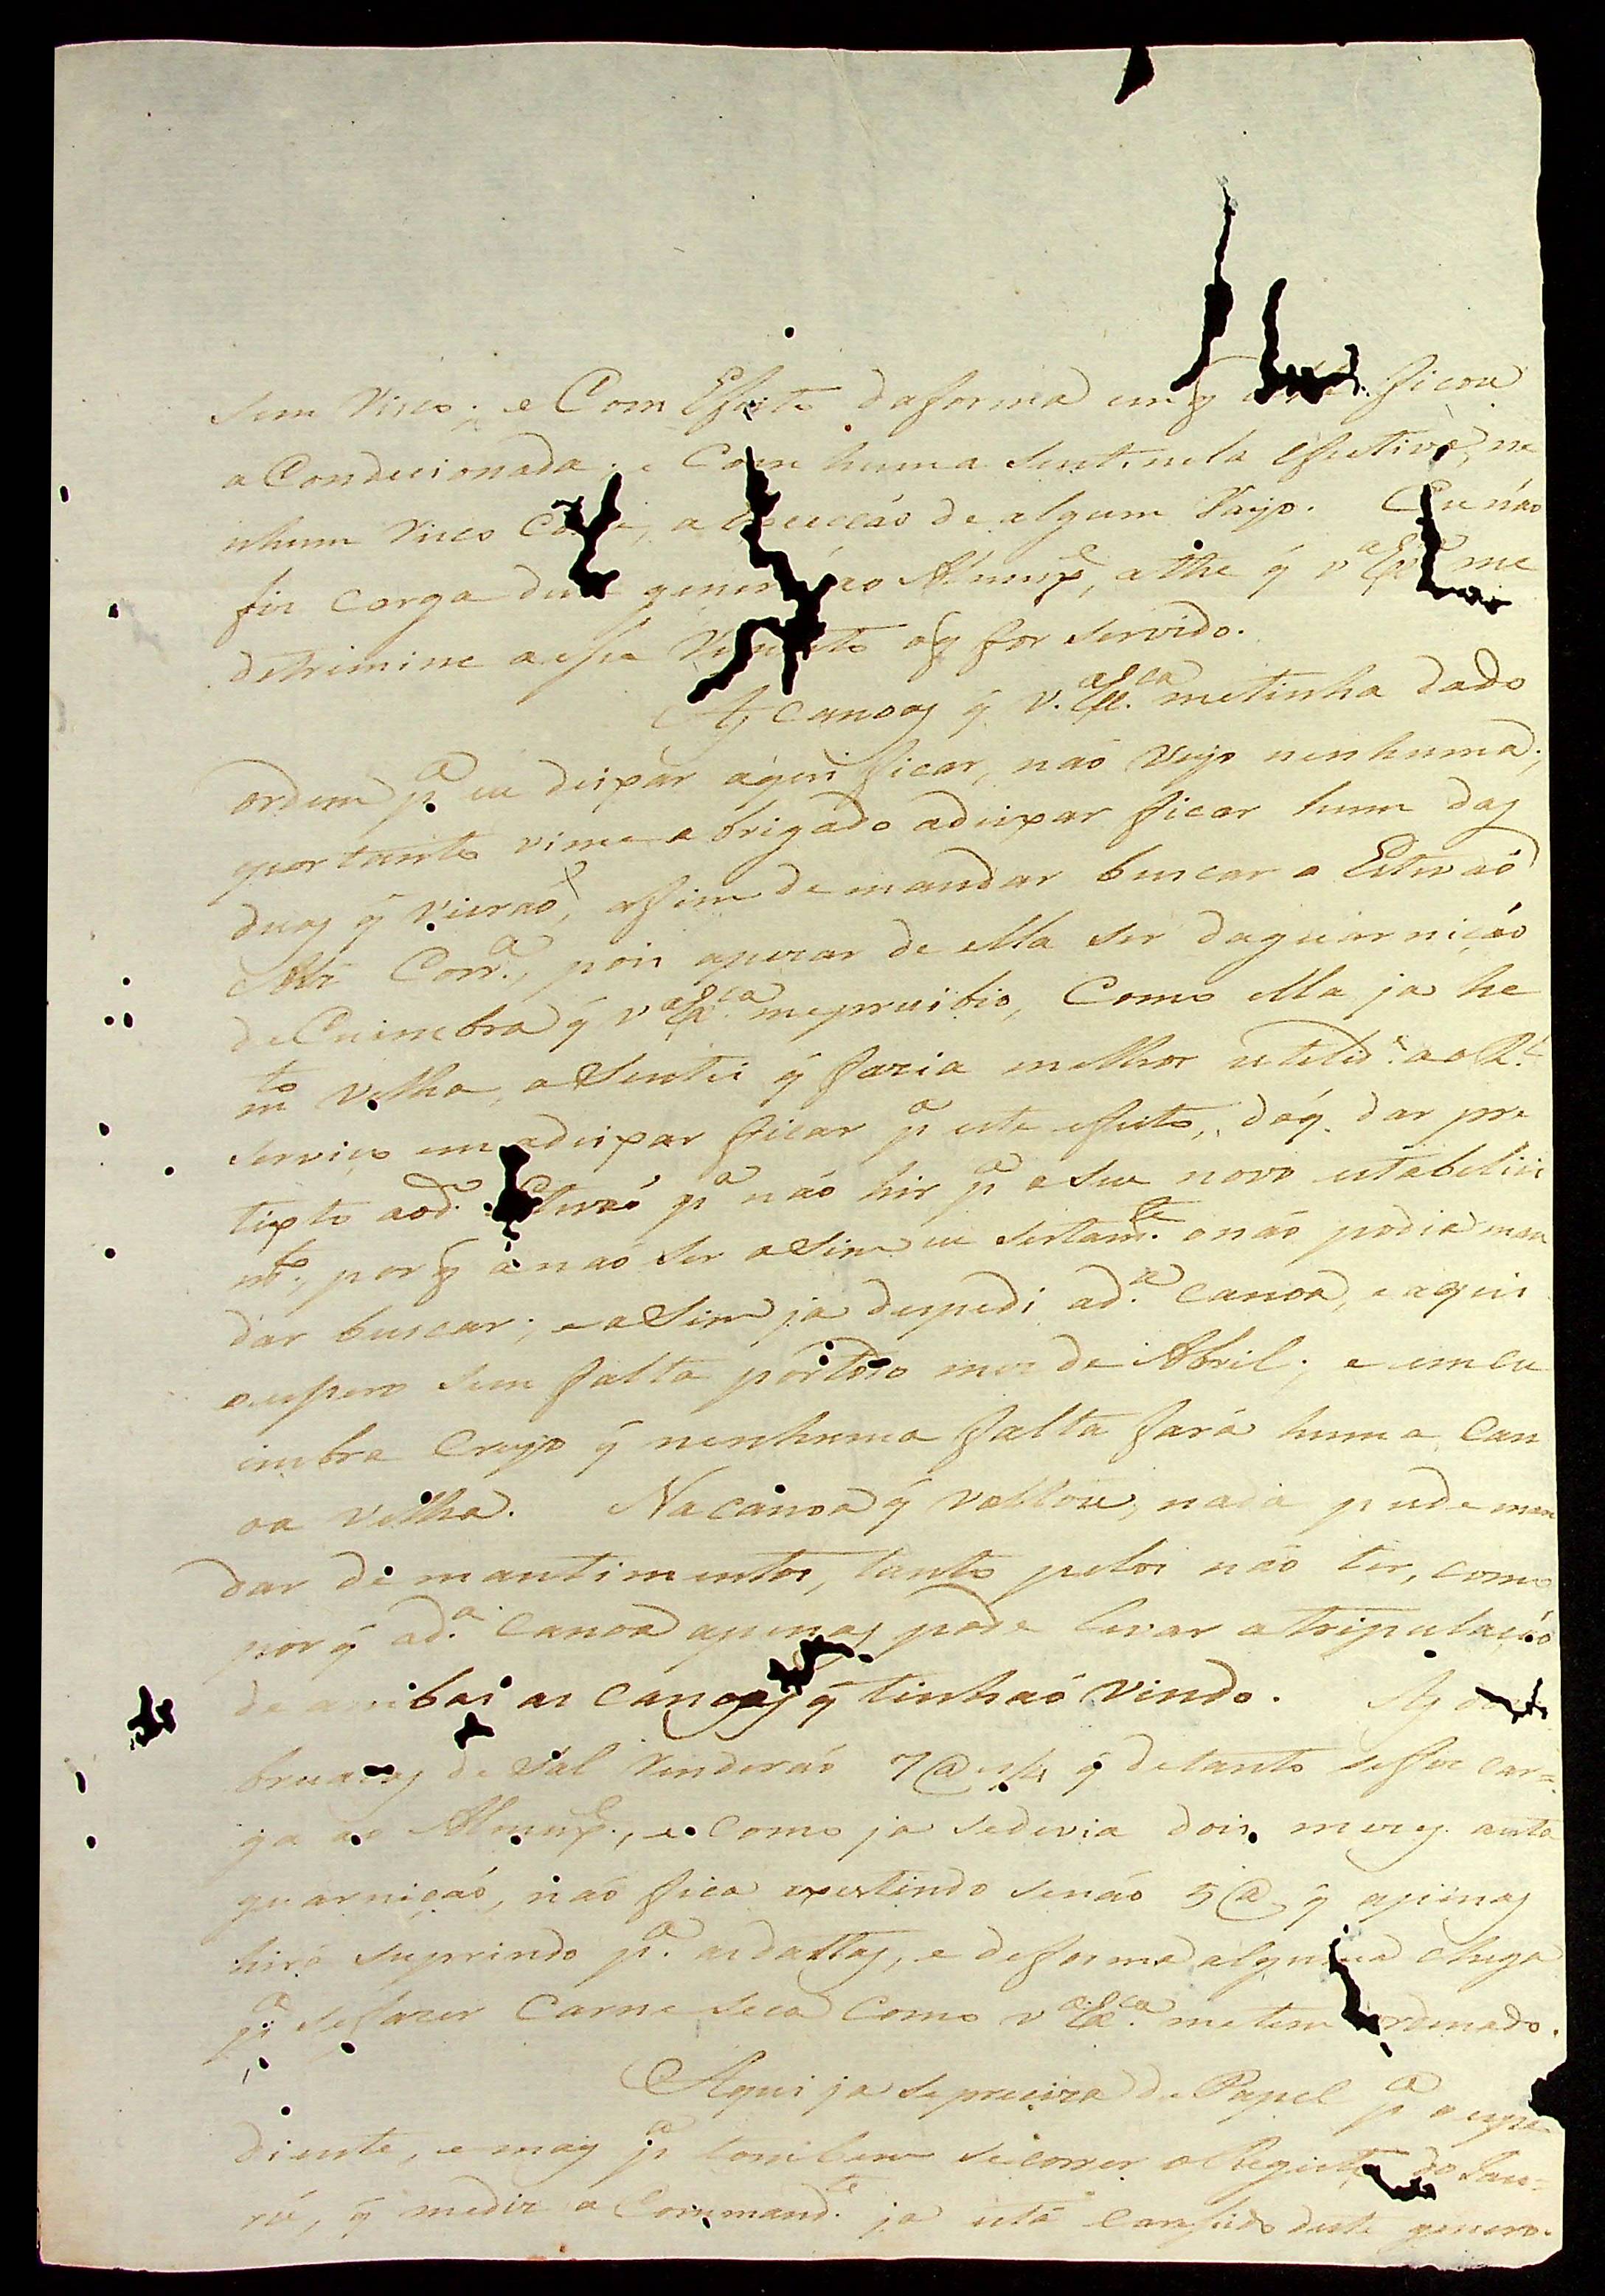 sem risco; e Com Efeito da forma em q ficou
a Condicionada, e Com huma sentinela effectiva, ne
nhum risco Corre, a exceicáo de algum Rayo. Eu náo
fiz carga deste genero ao Almuxe, athe q v.ª Exª me
detrimine a esse Respeito o q for servido.
As canoas q V.ª Ex.ca me tinha dado
ordem p.ª eu deixar áqui ficar, náo vejo nenhuma;
por tanto vime abrigado a deixar ficar huma das
duas q vieráo, afim de mandar buscar o Estevaó
Alz Corr.ª, pois apezar de ella ser da guarnicáo
de Cuimbra q v.ª Ex.ca me pruibio, Como ella ja he
m.to velha, aSentei q faria melhor utelid.e ao R.l
servico em a deixar ficar p.ª este effeito, do q. dar pre
tixto ao d.o Estevaó p.ª náo hir p.ª o seu novo estabelici
m.to, por q a naó ser aSim eu sertam.te o náo podia man
dar buscar; e aSim ja despedi a d.ª canoa, e aqui
o espero sem falta por tdo o mez de Abril; e em cu
imbra Creyo q nenhuma falta fará huma Can
oa velha. Na canoa q voltou, nada pude man
dar de mantimentos, tanto pelos náo ter, como
por q a d.ª Canoa apenas pode levar a tripulacáo
de ambas as canoas q tinhaó vindo. As
bruacas de Sal renderáo 7@ e 1/4 q de tanto se fes car=
ga ao Almuxe., e como ja se devia dois mezes a esta
guarnicáo, náo fica existindo senáo 5@ q apenas
hirá suprindo p.ª as dattas, e de forma alguma chega
p.ª se fazer Carne seca Como v.ª Ex.ca me tem ordenado.
Aqui ja se preciza de Papel p.ª o expe
diente, e mais p.ª tambem secorrer o Registo do Jau=
rú, q me diz o Command.e ja está Carecido deste genero.